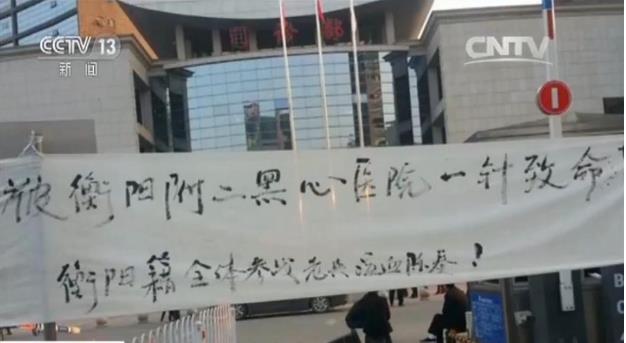 CCTV 13
新闻
CNTV
衡阳附二黑心医院一针致命
衡阳籍全体参战老兵